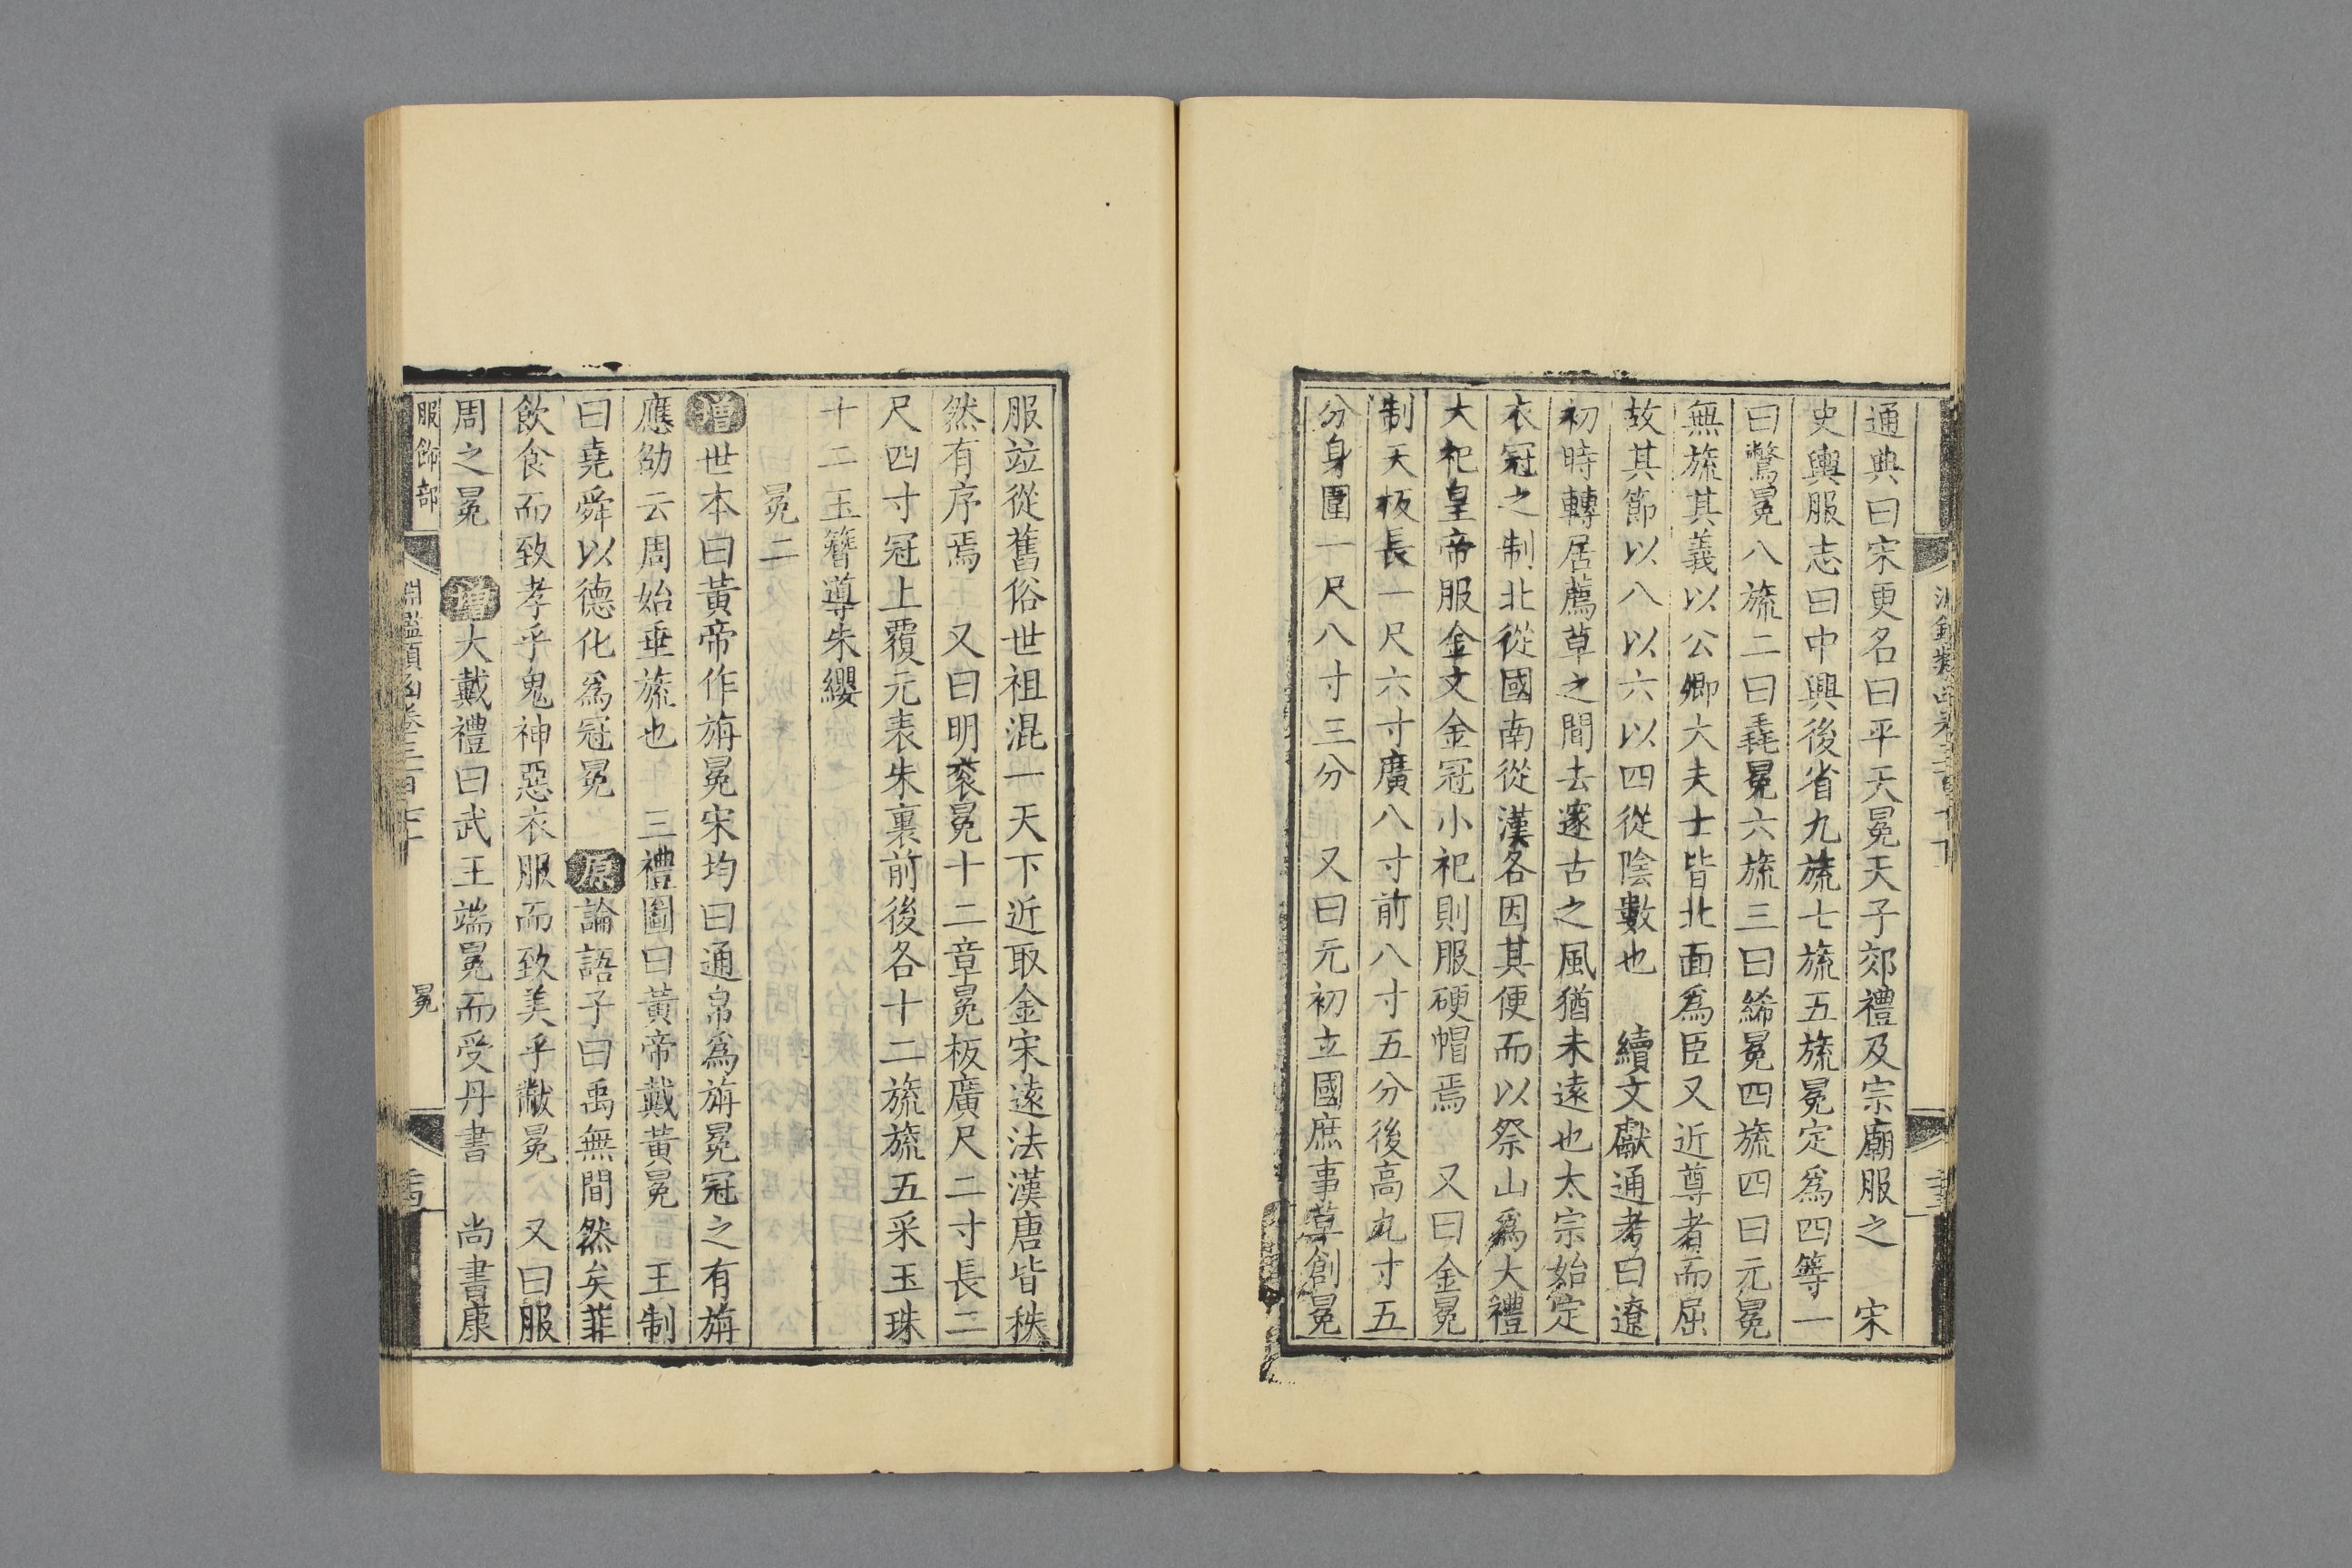 通典曰宋更名曰平天冕天子郊禮及宗廟服之　宋
史輿服志曰中興後省九旒七旒五旒冕定爲四等一
曰鷩冕八旒二曰毳冕六旒三曰絺冕四旒四曰元冕
無旒其義以公卿大夫士皆北面爲臣又近尊者而屈
故其節以八以六以四從陰數也　續文獻通考曰遼
初時轉居薦草之間去邃古之風猶未遠也太宗始定
衣冠之制北從國南從漢各因其便而以祭山爲大禮
大祀皇帝服金文金冠小祀則服硬帽焉　又曰金冕
制天板長一尺六寸廣八寸前八寸五分後高九寸五
分身圍一尺八寸三分　又曰元初立國庶事草創冕
服竝從舊俗世祖混一天下近取金宋遠法漢唐皆秩
然有序焉　又曰明衮冕十二章冕板廣尺二寸長二
尺四寸冠上覆元表朱裏前後各十二旒旒五采玉珠
十二玉簪導朱纓
冕二
增世本曰黃帝作旃冕宋均曰通帛爲旃冕冠之有旃
應劭云周始垂旒也　三禮圖曰黃帝戴黃冕　王制
曰堯舜以德化爲冠冕　原論語子曰禹無間然矣菲
飲食而致孝乎鬼神惡衣服而致美乎黻冕　又曰服
周之冕　增大戴禮曰武王端冕而受丹書　尚書康
服飾部
淵鑑類函卷三百七十
冕